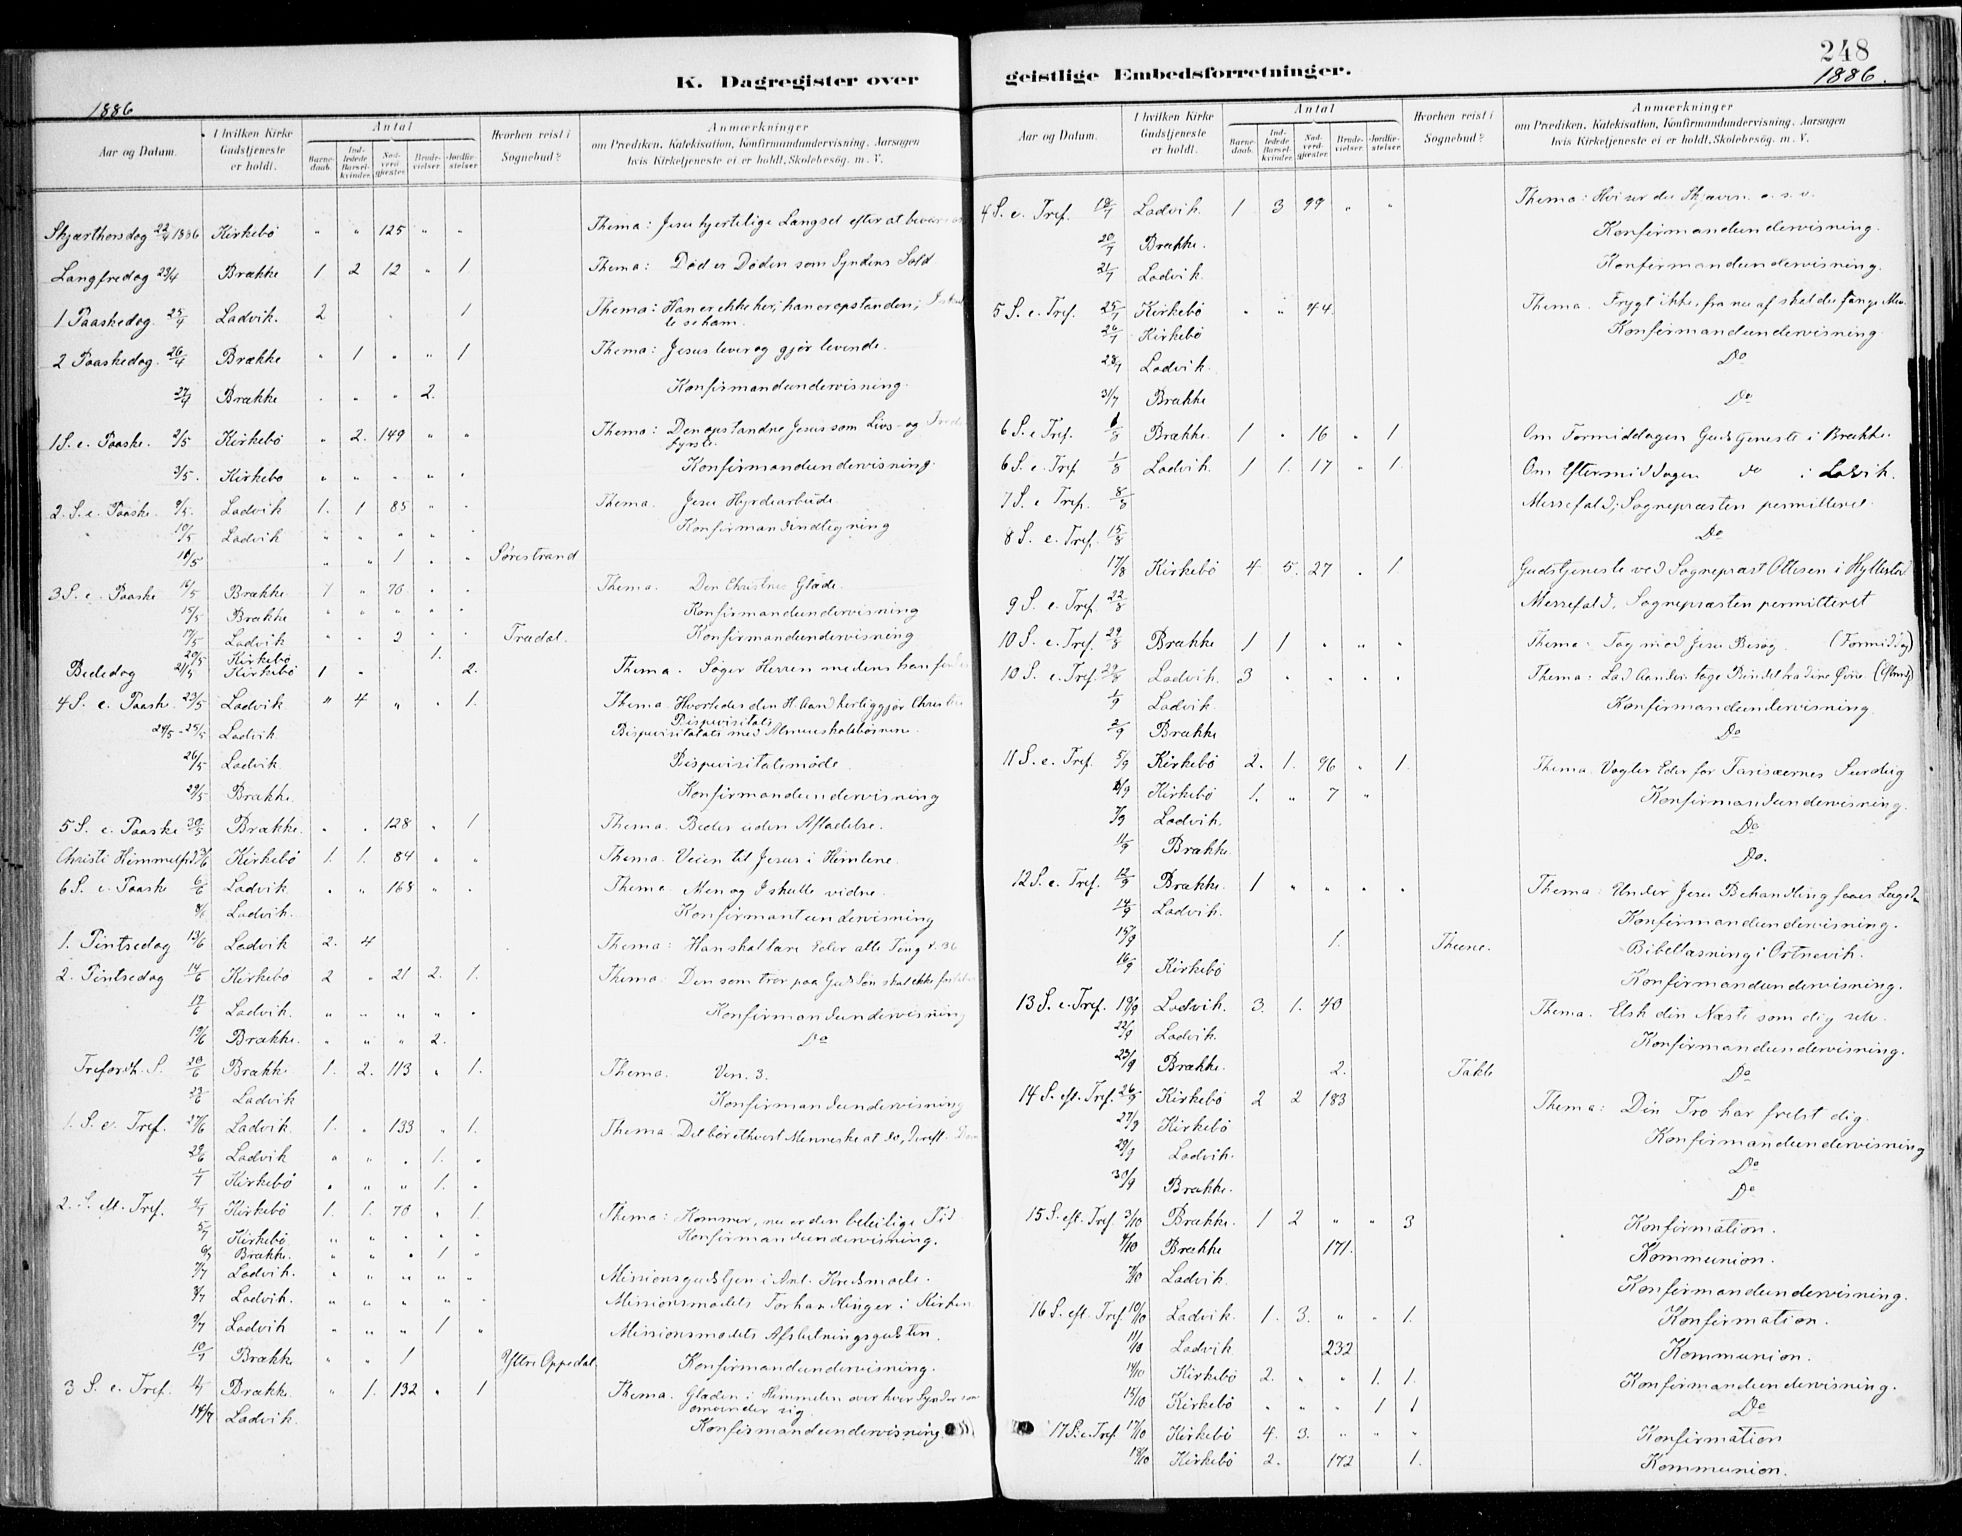 248
K. Dagregister over
geistlige Embedsforretninger.
1886
1886.
Aar og Datum. I hvilken Kirke Gudstjeneste er holdt. Antal Barnedaab. Indledede Barselkvinder. Nadverdgjæster. Brudevielser. Jordfæstelser Hvorhen reist i Sognebud? Anmærkninger om Prædiken, Katekisation, Konfirmandundervisning, Aarsagen hvis Kirketjeneste ei er holdt, Skolebesøg. m. V.
Skjærthorsdag 22/4 1886 Kirkebö " " 125 " " Thema: Jesu hjertelige Langsel efter at
Langfredag 23/4 Brække 1 2 12 " 1 Thema: Død er Døden som Syndens Sold
1 Paaskedag. 25/4 Ladvik. 2 1 Thema: Han er ikke her, han er opstanden;
2 Paaskedag. 26/4 Brække " 1 " " 1 Thema: Jesus lever og gjør levende.
27/4 Brække " " " 2. Konfirmandundervisning.
1 S. e. Paaske. 2/5 Kirkebö " 2. 149 " " Thema: Den opstandne Jesus som Livs- og
fyrste.
3/5. Kirkebö " " " " " Konfirmandundervisning.
2. S. e. Paaske. 9/5. Ladvik 1. 1 85 " " Thema. Jesu Hyrdearbeide.
10/5 Ladvik " " " " " Konfirmandundervisning
/5 " " 1 " " Sörestrand
3 S. e. Paaske 16/5 Brække 1 " 76 " " Thema. Den Christnes Glæde.
15/5 Brække " " " " " Konfirmandundervisning
17/5 Ladvik " " 2 " " Tredal. Konfirmandundervisning
20/5 Kirkebö 1.
Bededag 21/5 Kirkebö 1 " 2. Thema. Søger Herren medens han
4 S. e. Paaske 23/5 Ladvik " 4 " " 1. Thema. Hvorledes den H. Aand herliggjør
24/5-25/5 Ladvik Bispevisitats med Almueskolebørnene.
26/5 Ladvik. Bispevisitatsmöde.
29/5 Brække. Konfirmandundervisning
5 S. e. Paaske 30/5 Brække. " " 128 " 1 Thema. Beder uden Afladelse.
Christi Himmelf. 3/6 Kirkebö 1. 1. 84 " " Thema. Veien til Jesus i Himlene.
6 S. e. Paaske 6/6 Ladvik " " 168 " " Thema. Men og I skulle vidne.
8/6 Ladvik. Konfirmantundervisning
1. Pintsedag 13/6 Ladvik 2. 4 Thema: Han skal lære Eder alle Ting v. 26
2. Pintsedag 14/6 Kirkebö 2 " 21 2. 1. Thema: Den som tror paa Guds Søn skal ikke
17/6 Ladvik. " " " " " Konfirmandundervisning
19/6 Brække. " " " 2. Do
Trefoldh. S. 20/6 Brække 1. 2. 113 " 1. Thema. Ven. 3.
23/6 Ladvik Konfirmandundervisning
1. S. e. Tref. 27/6 Ladvik. 1. " 133 " 1. Thema. Det bør ethvert Menneske at dø, dereft. Dom
29/6 Ladvik " " " 1. "
1/7 Kirkebö " " " 1. "
2. S. eft. Tref. 4/7 Kirkebö 1. 1. 70 " 1. Thema: Kommer, nu er den beleilige Tid
5/7 Kirkebö " " " " Konfirmandundervisning.
6/7 Brække. " " " 1 "
7/7 Ladvik. " " " " " Missionsgudstjen i Anl. Kredsmøde.
8/7 Ladvik. " " " " " Missionsmødets Forhandlinger i Kirken
9/7 Ladvik " " " 1 " Missionsmødets Afslutningsgudstjen.
10/7 Brække " " 1 Yttre Oppedal. Konfirmandundervisning.
3 S. e. Tref. /7 Brække. " 1. 132 " 1 Thema. Glæden i Himmelen over hver Synder som
omvender sig
14/7 Ladvik. Konfirmandundervisning.
Aar og Datum. I hvilken Kirke Gudstjeneste er holdt. Antal Barnedaab. Indledede Barselkvinder. Nadverdgjæster. Brudevielser. Jordfæstelser Hvorhen reist i Sognebud? Anmærkninger om Prædiken, Katekisation, Konfirmandundervisning, Aarsagen hvis Kirketjeneste ei er holdt, Skolebesög. m. V.
4 S. e. Tref. 18/7 Ladvik. 1 3 99 " " Thema: Hvi ser du Skjæven o. s. v.
20/7 Brække. Konfirmandundervisning.
21/7 Ladvik. Konfirmandundervisning.
5 S. e. Tref. 25/7 Kirkebö " " 44. Thema. Frygt ikke, fra nu af skal du fange Men.
26/7 Kirkebö Konfirmandundervisning.
28/7 Ladvik. Do
31/7 Brække Do
6 S. e Tref. 1/8 Brække. 1 " 16 " 1 Om Formiddagen Gudstjeneste i Brække.
6 S. e. Tref 1/8 Ladvik. 1 1. 17 " 1. Om Eftermiddagen do i Ladvik.
7 S. e Tref. 8/8 Messefald; Sognepræsten permitteret.
8 S. e. Tref. 15/8 Do
17/8 Kirkebö 4 5. 27 " 1. Gudstjeneste ved Sognepræst Ottesen i Hyllestad
9 S. e. Tref. 22/8 Messefald, Sognepræsten permitteret
10 S. e. Tref. 29/8 Brække 1 1 " " " Thema: Tag mod Jesu Besøg. (Formidag)
10 S. e. Tref. 29/8 Ladvik. 3 " " " " Thema: Lad Aanden tage Bindet fra dine Øine.
1/9 Ladvik. Konfirmandundervisning.
2/9 Brække Do
11 S. e. Tref. 5/9 Kirkebö 2. 1. 96 " 1. Thema. Vogter Eder for Farisæernes Surdeig
6/9 Kirkebö 1. " 7 " Konfirmandundervisning.
7/9 Ladvik. Do
11/9 Brække. Do.
12 S. e. Tref. 12/9 Brække. 1 " " " " Thema: Under Jesu Behandling
14/9 Ladvik. Konfirmandundervisning.
15/9 1. Theene. Bibellæsning i Ortnevik.
16/9 Kirkebö Konfirmandundervisning.
13 S. e. Tref. 19/9 Ladvik. 3. 1. 40 Thema. Elsk din Næste som dig selv.
22/9 Ladvik. Konfirmandundervisning.
23/9 Brække. 2. Takle Do
14 S. eft. Tref. 26/9 Kirkebö 2 2 183 Thema: Din Tro har frelst dig.
27/9 Kirkebö Konfirmandundervisning
29/9 Ladvik. Do
30/9 Brække. Do
15 S. eft. Tref. 3/10 Brække. 1 2 " " 3 Konfirmation.
4/10 Brække 171. Kommunion.
7/10 Ladvik. Konfirmandundervisning.
16 S. eft. Tref. 10/10 Ladvik. 1. 3. " " 1. Konfirmation.
11/10 Ladvik. 232 Kommunion.
14/10 Kirkebö 2. " " 1. 1. Konfirmandundervisning.
15/10 Kirkebö " " " 1 1 Do
17 S. e. Tref. 17/10 Kirkebö 4. 3. " " " Konfirmation
18/10 Kirkebö 2. 172 1. Kommunion.